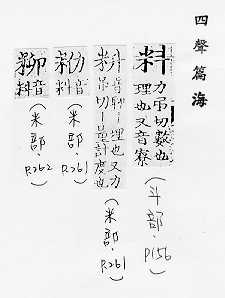 四聲篇海
料 力吊切數也
理也又音寮
(斗部, P156)
料 音聊理也又力
吊切量計度也
(米部, P.261)
音
料
(米部, P.261)
音
料
(米部, P.262)